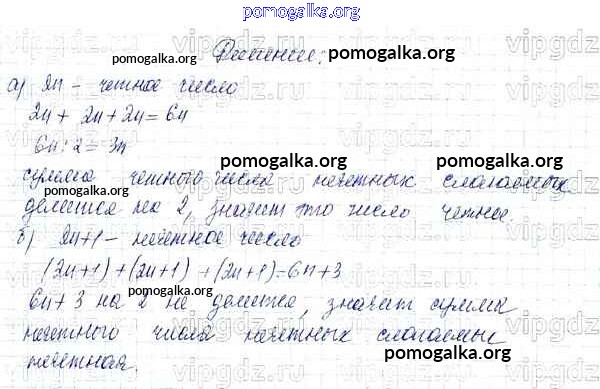 pomogalka.org
Решение: pomogalka.org
pomogalka.org
а) 2n - четное число
pomogalka.org
2n + 2n + 2n = 6n
6n : 2 = 3n
pomogalka.org pomogalka.org
сумма четного числа нечетных слагаемых
pomogalka.org
делится на 2, значит это число четное.
pomogalka.org
б) 2n+1 - нечетное число
(2n+1) + (2n+1) + (2n+1) = 6n+3
pomogalka.org
6n + 3 на 2 не делится, значит сумма
нечетного числа нечетных слагаемых
нечетная.
pomogalka.org
vipgdz.ru